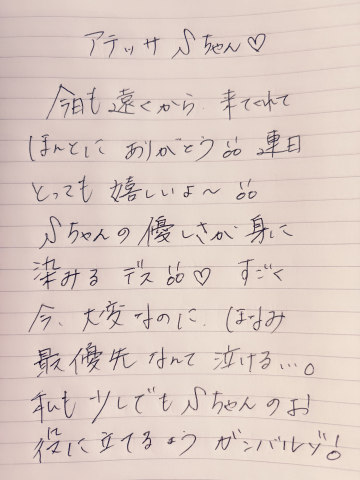 アテッサ Sちゃん♡
今日も遠くから 来てくれて
ほんとに ありがとう!! 連日
とっても 嬉しいよ〜!!
Sちゃんの優しさが 身に
染みる デス!!♡ すごく
今、大変なのに、ほなみ
最優先 なんて 泣ける…。
私も 少しでも Sちゃんのお
役に立てるよう ガンバルゾ!